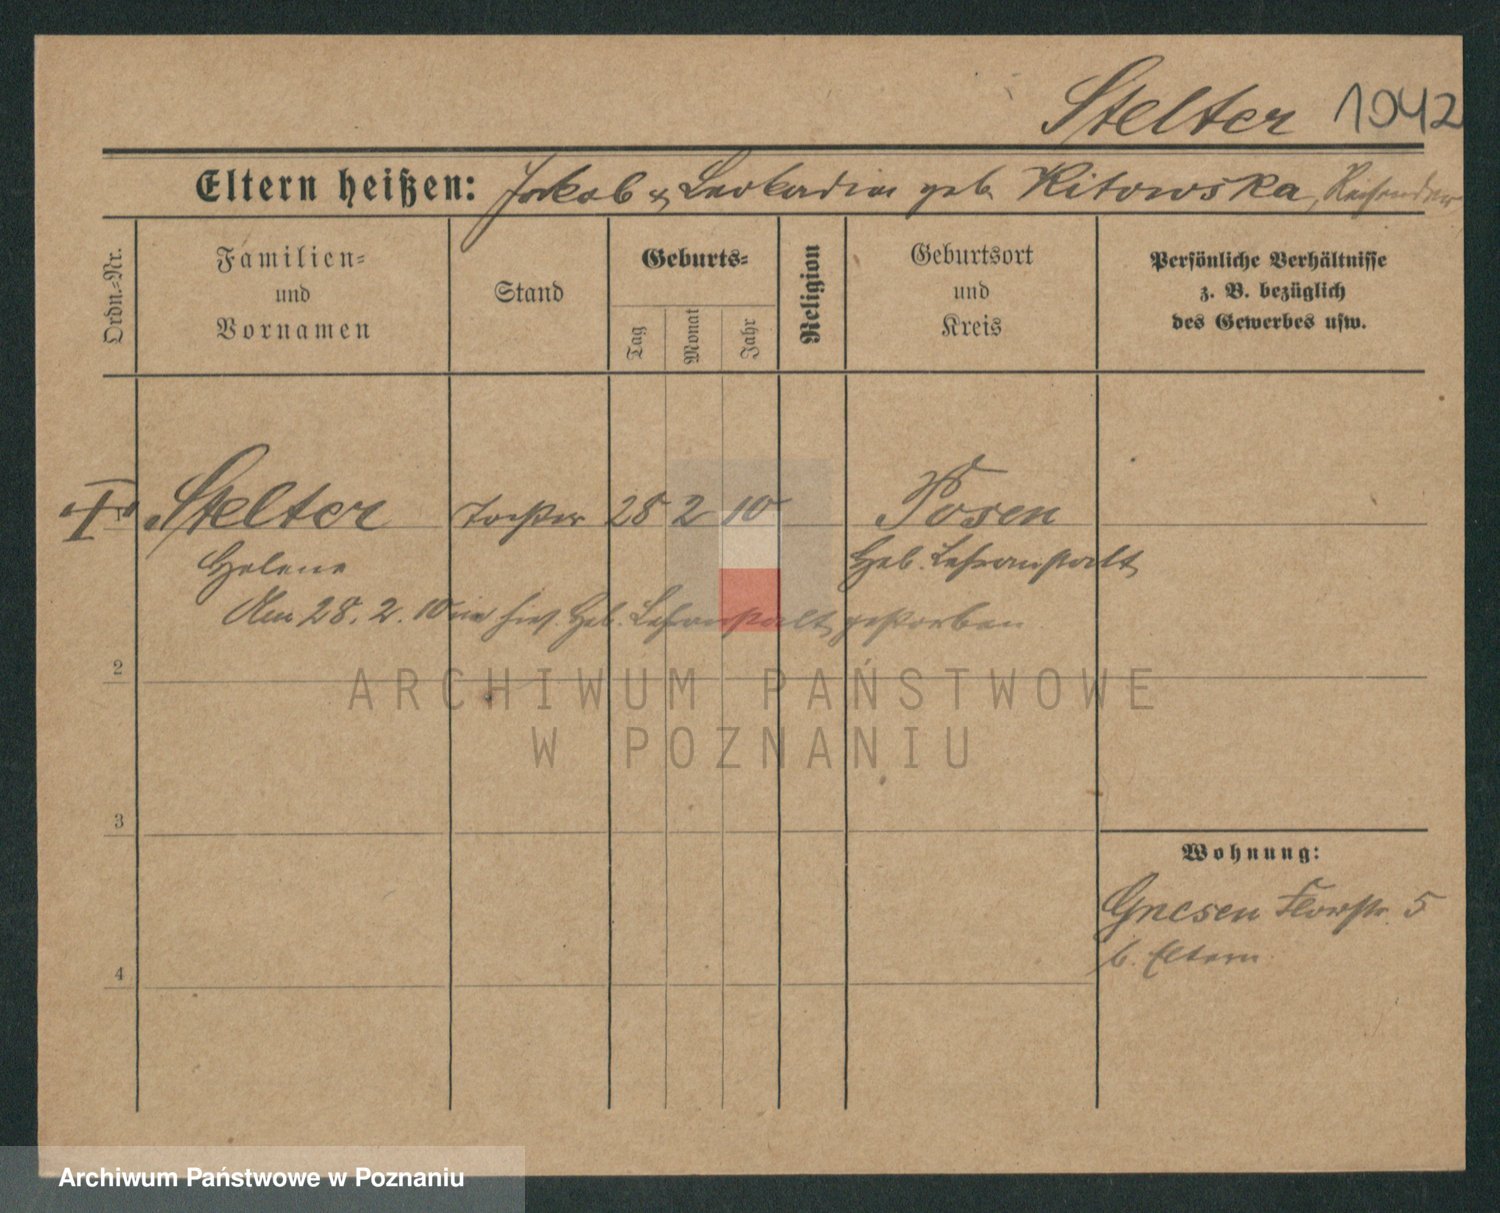 Stelter 1042
Eltern heißen: Jakob u. Leokadia geb. Kitowska, Reisender
Ordn.-Nr.
Familien-
und
Vornamen
Stand
Geburts-
Tag
Monat
Jahr
Religion
Geburtsort
und
Kreis
Persönliche Verhältnisse
z. B. bezüglich
des Gewerbes usw.
1 Stelter Tochter 28 2 10 Posen
Helene Heb. Lehranstalt
Am 28. 2. 10 in hies. Heb. Lehranstalt gestorben
2
ARCHIWUM PAŃSTWOWE
W POZNANIU
3
Wohnung:
Gnesen Florstr. 5
b. Eltern
4
Archiwum Państwowe w Poznaniu